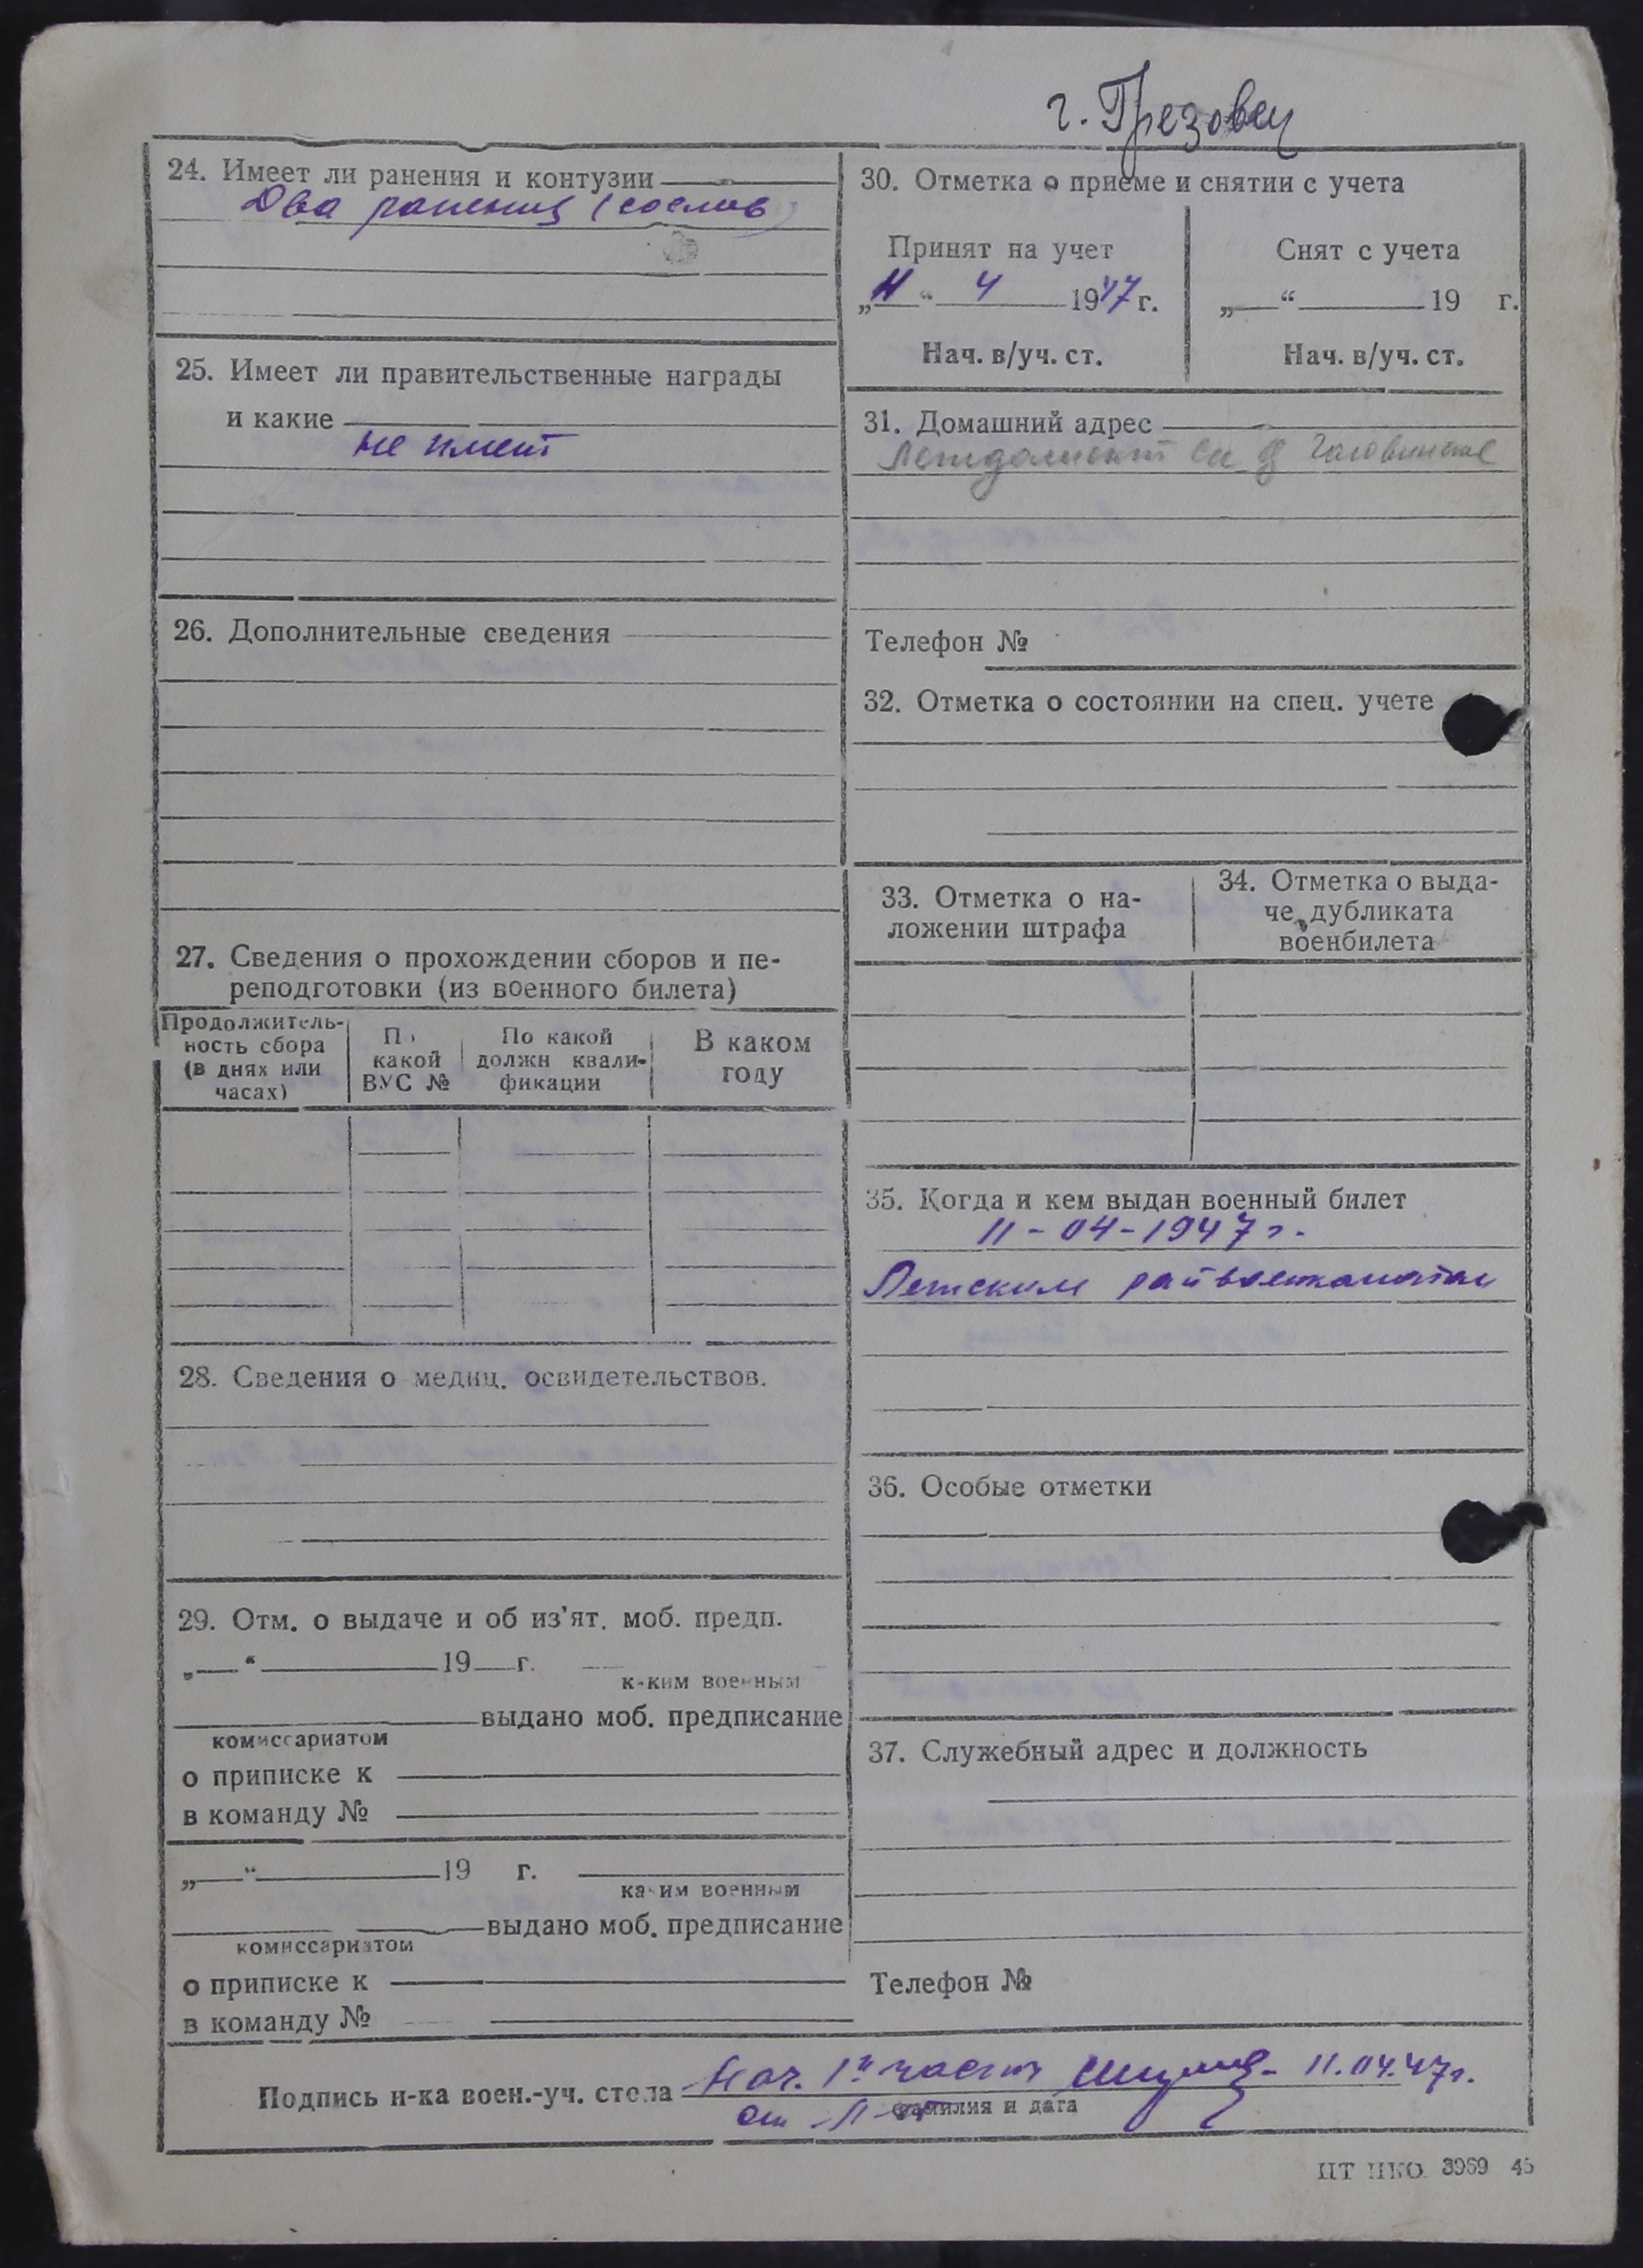 г. Грезовец
24. Имеет ли ранения и контузии
Два ранения (со слов)
25. Имеет ли правительственные награды
и какие
не имеет
26. Дополнительные сведения
27. Сведения о прохождении сборов и пе-
реподготовки (из военного билета)
Продолжитель-
ность сбора
(в днях или
часах)
По
какой
ВУС №
По какой
должн квали-
фикации
В каком
году
28. Сведения о медиц. освидетельствов.
29. Отм. о выдаче и об из'ят. моб. предп.
„ “ 19 г.
каким военным
выдано моб. предписание
комиссариатом
о приписке к
в команду №
„ “ 19 г.
каким военным
выдано моб. предписание
комиссариатом
о приписке к
в команду №
30. Отметка о приеме и снятии с учета
Принят на учет
„11“ 4 1947 г.
Нач. в/уч. ст.
Снят с учета
„ “ 19 г.
Нач. в/уч. ст.
31. Домашний адрес
Телефон №
32. Отметка о состоянии на спец. учете
33. Отметка о на-
ложении штрафа
34. Отметка о выда-
че дубликата
военбилета
35. Когда и кем выдан военный билет
11-04-1947 г.
райвоенкоматом
36. Особые отметки
37. Служебный адрес и должность
Телефон №
Подпись н-ка воен.-уч. стола Нач. 1й части 11.04.47г.
фамилия и дата
ЦТ НКО 3969 45